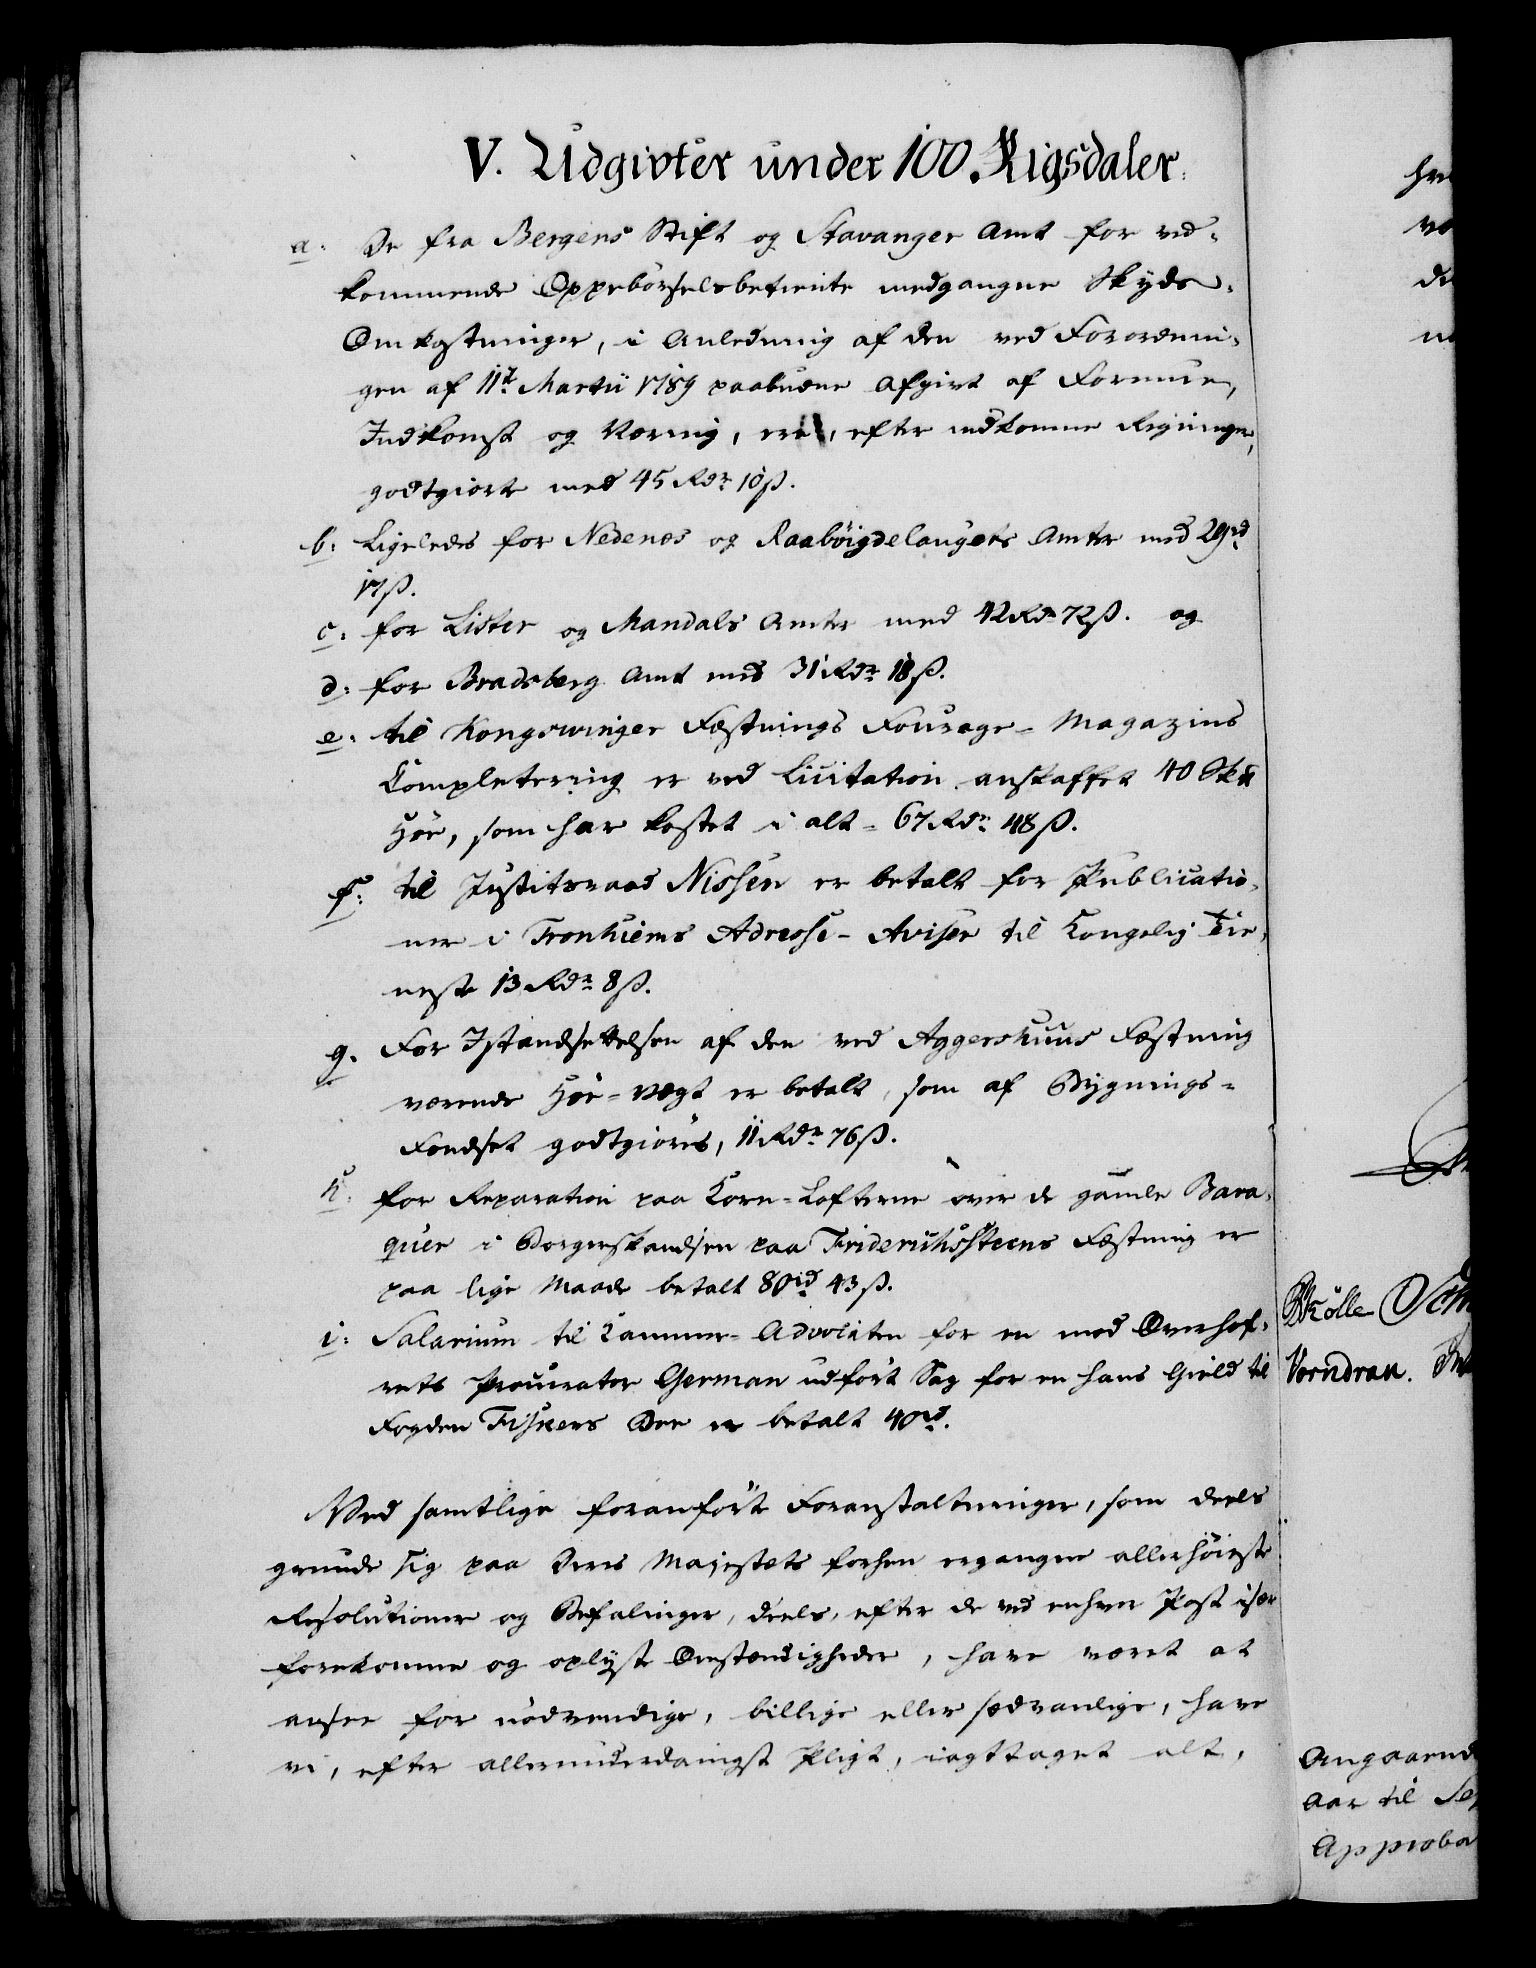 V. Udgivter under 100 Rigsdaler.
a. De fra Bergens Stift og Stavanger Amt for ved-
kommende Oppebörselsbetiente medgangne Skyds-
Omkostninger, i Anledning af den ved Forordnin-
gen af 11te Martii 1789 paabudne Afgivt af Formue,
Indkomst og Næring, ere, efter indkomne Regninger,
godtgiorte med 45 Rdr 10 ß.
b: Ligeledes for Nedenes og Raaböigdelaugets Amter med 29 rd
17 ß.
c: for Lister og Mandals Amter med 42 Rdr 72 ß. og
d: for Bradsberg Amt med 31 Rdr 18 ß.
e: til Kongswinger Fæstnings Fourage-Magazins
Completering er ved Licitation anskaffet 40 Sk
Höe, som har kostet i alt - 67 Rdr 48 ß.
f: til Justitsraad Nissen er betalt for Publicatio-
ner i Tronhiems Adresse-Aviser til Kongelig Tie-
neste 13 Rdr 8 ß.
g. For Istandsettelsen af den ved Aggershuus Fæstning
værende Höe-Vægt er betalt, som af Bygnings-
Fondset godtgiöres, 11 Rdr 76 ß.
h. for Reparation paa Korn-Lofterne over de gamle Bara-
quer i Borgerskandsen paa Friderichssteens Fæstning er
paa lige Maade betalt 80 rd 43 ß.
i: Salarium til Kammer-Advocaten for en mod Overhof-
rets Procurator German udfört Sag for en hans Gield til
Fogden Fiskers Boe er betalt 40 rd.
Med samtlige foranförte Foranstaltninger, som deels
grunde sig paa Deres Majestæts forhen ergangne allerhöieste
Resolutioner og Befalinger, deels, efter de ved enhver Post især
forekomne og oplyste Omstændigheder, have været at
ansee for nödvendige, billige eller sædvanlige, have
vi, efter allerunderdanigst Pligt, iagttaget alt,
Skölle
Vorndran.
Angaaend
Aar til
Approba